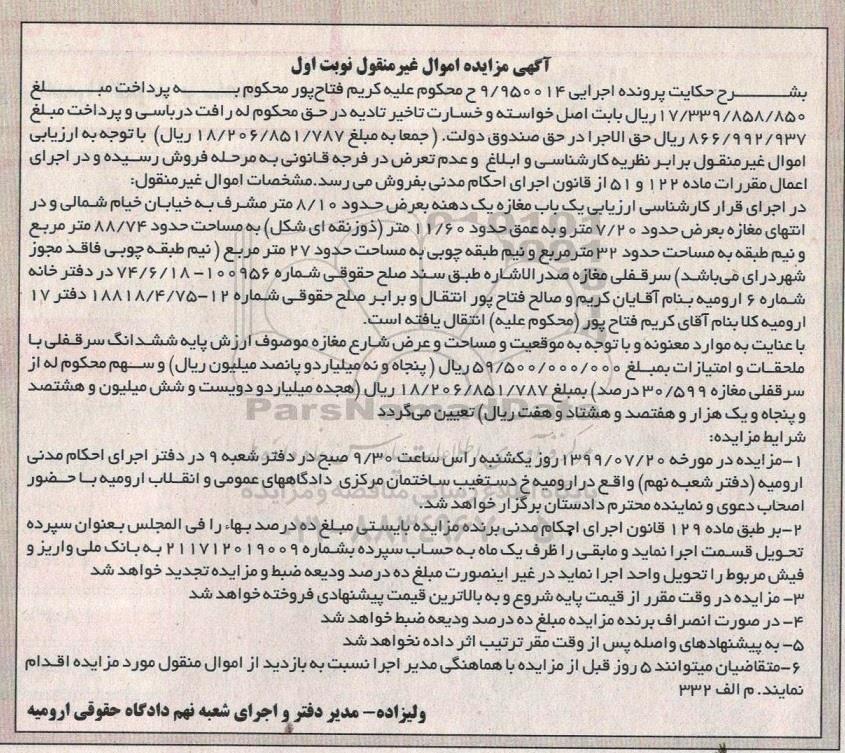 آگهی مزایده اموال غیرمنقول نوبت اول
بشرح حکایت پرونده اجرایی ۹/۹۵۰۰۱۴ ح محکوم علیه کریم فتاح‌پور محکوم به پرداخت مبلغ
۱۷/۳۳۹/۸۵۸/۸۵۰ ریال بابت اصل خواسته و خسارت تاخیر تادیه در حق محکوم له رافت درباسی و پرداخت مبلغ
۸۶۶/۹۹۲/۹۳۷ ریال حق الاجرا در حق صندوق دولت. ( جمعا به مبلغ ۱۸/۲۰۶/۸۵۱/۷۸۷ ریال) با توجه به ارزیابی
اموال غیرمنقول برابر نظریه کارشناسی و ابلاغ و عدم تعرض در فرجه قانونی به مرحله فروش رسیده و در اجرای
اعمال مقررات ماده ۱۲۲ و ۵۱ از قانون اجرای احکام مدنی بفروش می رسد.مشخصات اموال غیرمنقول:
در اجرای قرار کارشناسی ارزیابی یک باب مغازه یک دهنه بعرض حدود ۸/۱۰ متر مشرف به خیابان خیام شمالی و در
انتهای مغازه بعرض حدود ۷/۲۰ متر و به عمق حدود ۱۱/۶۰ متر (ذوزنقه ای شکل) به مساحت حدود ۸۸/۷۴ متر مربع
و نیم طبقه به مساحت حدود ۳۲ مترمربع و نیم طبقه چوبی به مساحت حدود ۲۷ متر مربع ( نیم طبقه چوبی فاقد مجوز
شهرداری می‌باشد) سرقفلی مغازه صدرالاشاره طبق سند صلح حقوقی شماره ۱۰۰۹۵۶- ۷۴/۶/۱۸ در دفتر خانه
شماره ۶ ارومیه بنام آقایان کریم و صالح فتاح پور انتقال و برابر صلح حقوقی شماره ۱۲-۱۸۸۱۸/۴/۷۵ دفتر ۱۷
ارومیه کلا بنام آقای کریم فتاح پور (محکوم علیه) انتقال یافته است.
با عنایت به موارد معنونه و با توجه به موقعیت و مساحت و عرض شارع مغازه موصوف ارزش پایه ششدانگ سرقفلی با
ملحقات و امتیازات بمبلغ ۵۹/۵۰۰/۰۰۰/۰۰۰ ریال ( پنجاه و نه میلیارد و پانصد میلیون ریال) و سهم محکوم له از
سرقفلی مغازه ۳۰/۵۹۹ درصد) بمبلغ ۱۸/۲۰۶/۸۵۱/۷۸۷ ریال (هجده میلیارد و دویست و شش میلیون و هشتصد
و پنجاه و یک هزار و هفتصد و هشتاد و هفت ریال) تعیین می‌گردد
شرایط مزایده:
۱-مزایده در مورخه ۱۳۹۹/۰۷/۲۰ روز یکشنبه راس ساعت ۹/۳۰ صبح در دفتر شعبه ۹ در دفتر اجرای احکام مدنی
ارومیه (دفتر شعبه نهم) واقع در ارومیه خ دستغیب ساختمان مرکزی دادگاههای عمومی و انقلاب ارومیه با حضور
اصحاب دعوی و نماینده محترم دادستان برگزار خواهد شد.
۲-بر طبق ماده ۱۲۹ قانون اجرای احکام مدنی برنده مزایده بایستی مبلغ ده درصد بهاء را فی المجلس بعنوان سپرده
تحویل قسمت اجرا نماید و مابقی را ظرف یک ماه به حساب سپرده بشماره ۲۱۱۷۱۲۰۱۹۰۰۹ به بانک ملی واریز و
فیش مربوط را تحویل واحد اجرا نماید در غیر اینصورت مبلغ ده درصد ودیعه ضبط و مزایده تجدید خواهد شد
۳- مزایده در وقت مقرر از قیمت پایه شروع و به بالاترین قیمت پیشنهادی فروخته خواهد شد
۴- در صورت انصراف برنده مزایده مبلغ ده درصد ودیعه ضبط خواهد شد
۵- به پیشنهادهای واصله پس از وقت مقرر ترتیب اثر داده نخواهد شد
۶-متقاضیان میتوانند ۵ روز قبل از مزایده با هماهنگی مدیر اجرا نسبت به بازدید از اموال منقول مورد مزایده اقدام
نمایند. م الف ۳۳۲
ولیزاده- مدیر دفتر و اجرای شعبه نهم دادگاه حقوقی ارومیه
ParsNamadData